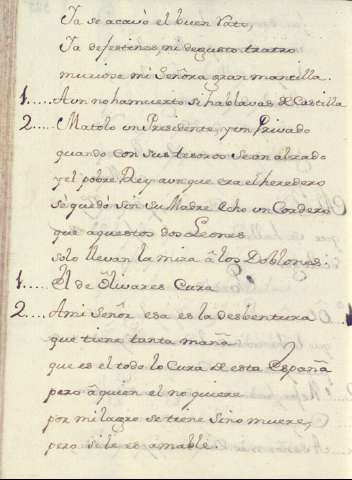 Ya se acavò el buen rato,
Ya defestines, ni degusto tratto
muriose mi Señora gran mantilla.
1.....Aun no ha muerto si hablavas de Castilla
2.....Matòlo un Presidente, y un Privado
quando con sus tesoros se an alzado
y el pobre Rey aunque era el heredero
se quedò sin su Madre hecho un Cordero
que aquestos dos Leones
solo llevan la mira â los Doblones.
1.....El de Olivares Cura
2.....A mi Señor esa es la desbentura
que tiene tanta maña
que es el todo lo Cura de esta España
pero â quien el no quiere
por milagro se tiene sino muere,
pero si le es amable.